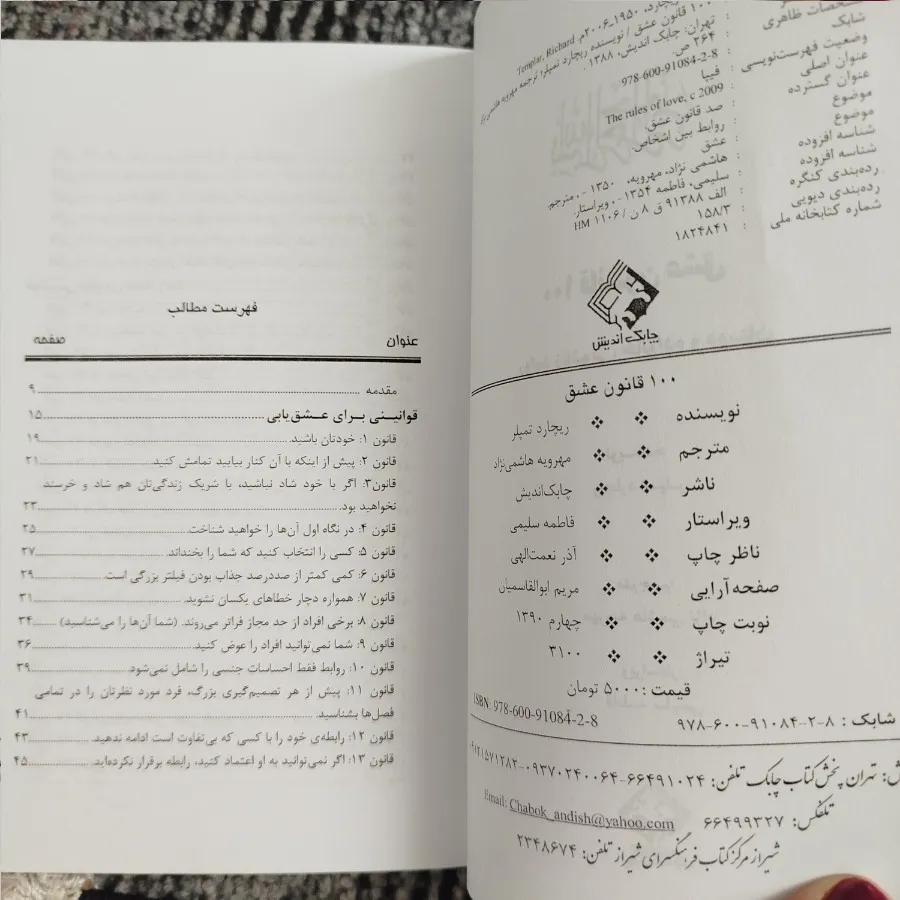 مشخصات ظاهری
شابک
وضعیت فهرست‌نویسی
عنوان اصلی
عنوان گسترده
موضوع
موضوع
شناسه افزوده
شناسه افزوده
رده‌بندی کنگره
رده‌بندی دیویی
شماره کتابخانه ملی
Templar, Richard ۱۹۵۰-۲۰۰۶م.
۱۰۰ قانون عشق / نویسنده ریچارد تمپلر؛ ترجمه مهرویه هاشمی‌نژاد
تهران: چابک اندیش، ۱۳۸۸.
۲۶۴ ص.
978-600-91084-2-8
فیپا
The rules of love, c 2009
صد قانون عشق.
روابط بین اشخاص.
عشق
هاشمی نژاد، مهرویه، ۱۳۵۰ - ، مترجم.
سلیمی، فاطمه ۱۳۵۴ - ، ویراستار.
HM ۱۱۰۶ / الف ۹۱۳۸۸ ق ۸ ن
۱۵۸/۳
۱۸۲۴۸۴۱
چابک اندیش
۱۰۰ قانون عشق
نویسنده ❖ ❖ ریچارد تمپلر
مترجم ❖ ❖ مهرویه هاشمی‌نژاد
ناشر ❖ ❖ چابک‌اندیش
ویراستار ❖ ❖ فاطمه سلیمی
ناظر چاپ ❖ ❖ آذر نعمت‌الهی
صفحه‌آرایی ❖ ❖ مریم ابوالقاسمیان
نوبت چاپ ❖ ❖ چهارم ۱۳۹۰
تیراژ ❖ ❖ ۳۱۰۰
قیمت: ۵۰۰۰ تومان
شابک : ۸-۲-۹۱۰۸۴-۶۰۰-۹۷۸ ISBN: 978-600-91084-2-8
تهران پخش کتاب چابک تلفن: ۶۶۴۹۱۰۲۴-۰۹۳۷۰۲۴۰۰۶۴-۰۹۱۲۱۵۷۱۲۸۲
تلفکس: ۶۶۴۹۹۳۲۷ Email: Chabok_andish@yahoo.com
شیراز مرکز کتاب فرهنگسرای شیراز تلفن: ۲۳۴۸۶۷۴
فهرست مطالب
عنوان صفحه
مقدمه ۹
قوانینی برای عشق‌یابی ۱۵
قانون ۱: خودتان باشید. ۱۹
قانون ۲: پیش از اینکه با آن کنار بیایید تمامش کنید. ۲۱
قانون۳: اگر با خود شاد نباشید، با شریک زندگی‌تان هم شاد و خرسند
نخواهید بود. ۲۳
قانون ۴: در نگاه اول آن‌ها را خواهید شناخت. ۲۵
قانون ۵: کسی را انتخاب کنید که شما را بخنداند. ۲۷
قانون ۶: کمی کمتر از صددرصد جذاب بودن فیلتر بزرگی است. ۲۹
قانون ۷: همواره دچار خطاهای یکسان نشوید. ۳۱
قانون ۸: برخی افراد از حد مجاز فراتر می‌روند. (شما آن‌ها را می‌شناسید) ۳۴
قانون ۹: شما نمی‌توانید افراد را عوض کنید. ۳۶
قانون ۱۰: روابط فقط احساسات جنسی را شامل نمی‌شود. ۳۹
قانون ۱۱: پیش از هر تصمیم‌گیری بزرگ، فرد مورد نظرتان را در تمامی
فصل‌ها بشناسید. ۴۱
قانون ۱۲: رابطه‌ی خود را با کسی که بی‌تفاوت است ادامه ندهید. ۴۳
قانون ۱۳: اگر نمی‌توانید به او اعتماد کنید، رابطه برقرار نکرده‌اید. ۴۵